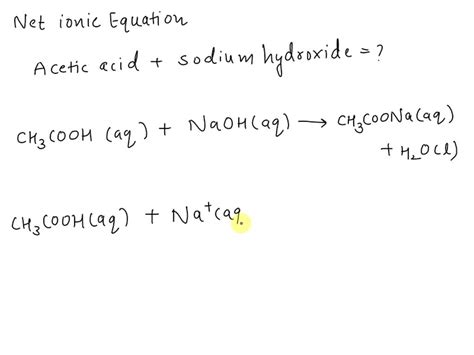 Net ionic Equation
Acetic acid + sodium hydroxide = ?
CH₃COOH (aq) + NaOH(aq) ⟶ CH₃COONa(aq)
+ H₂O(l)
CH₃COOH(aq) + Na⁺(aq